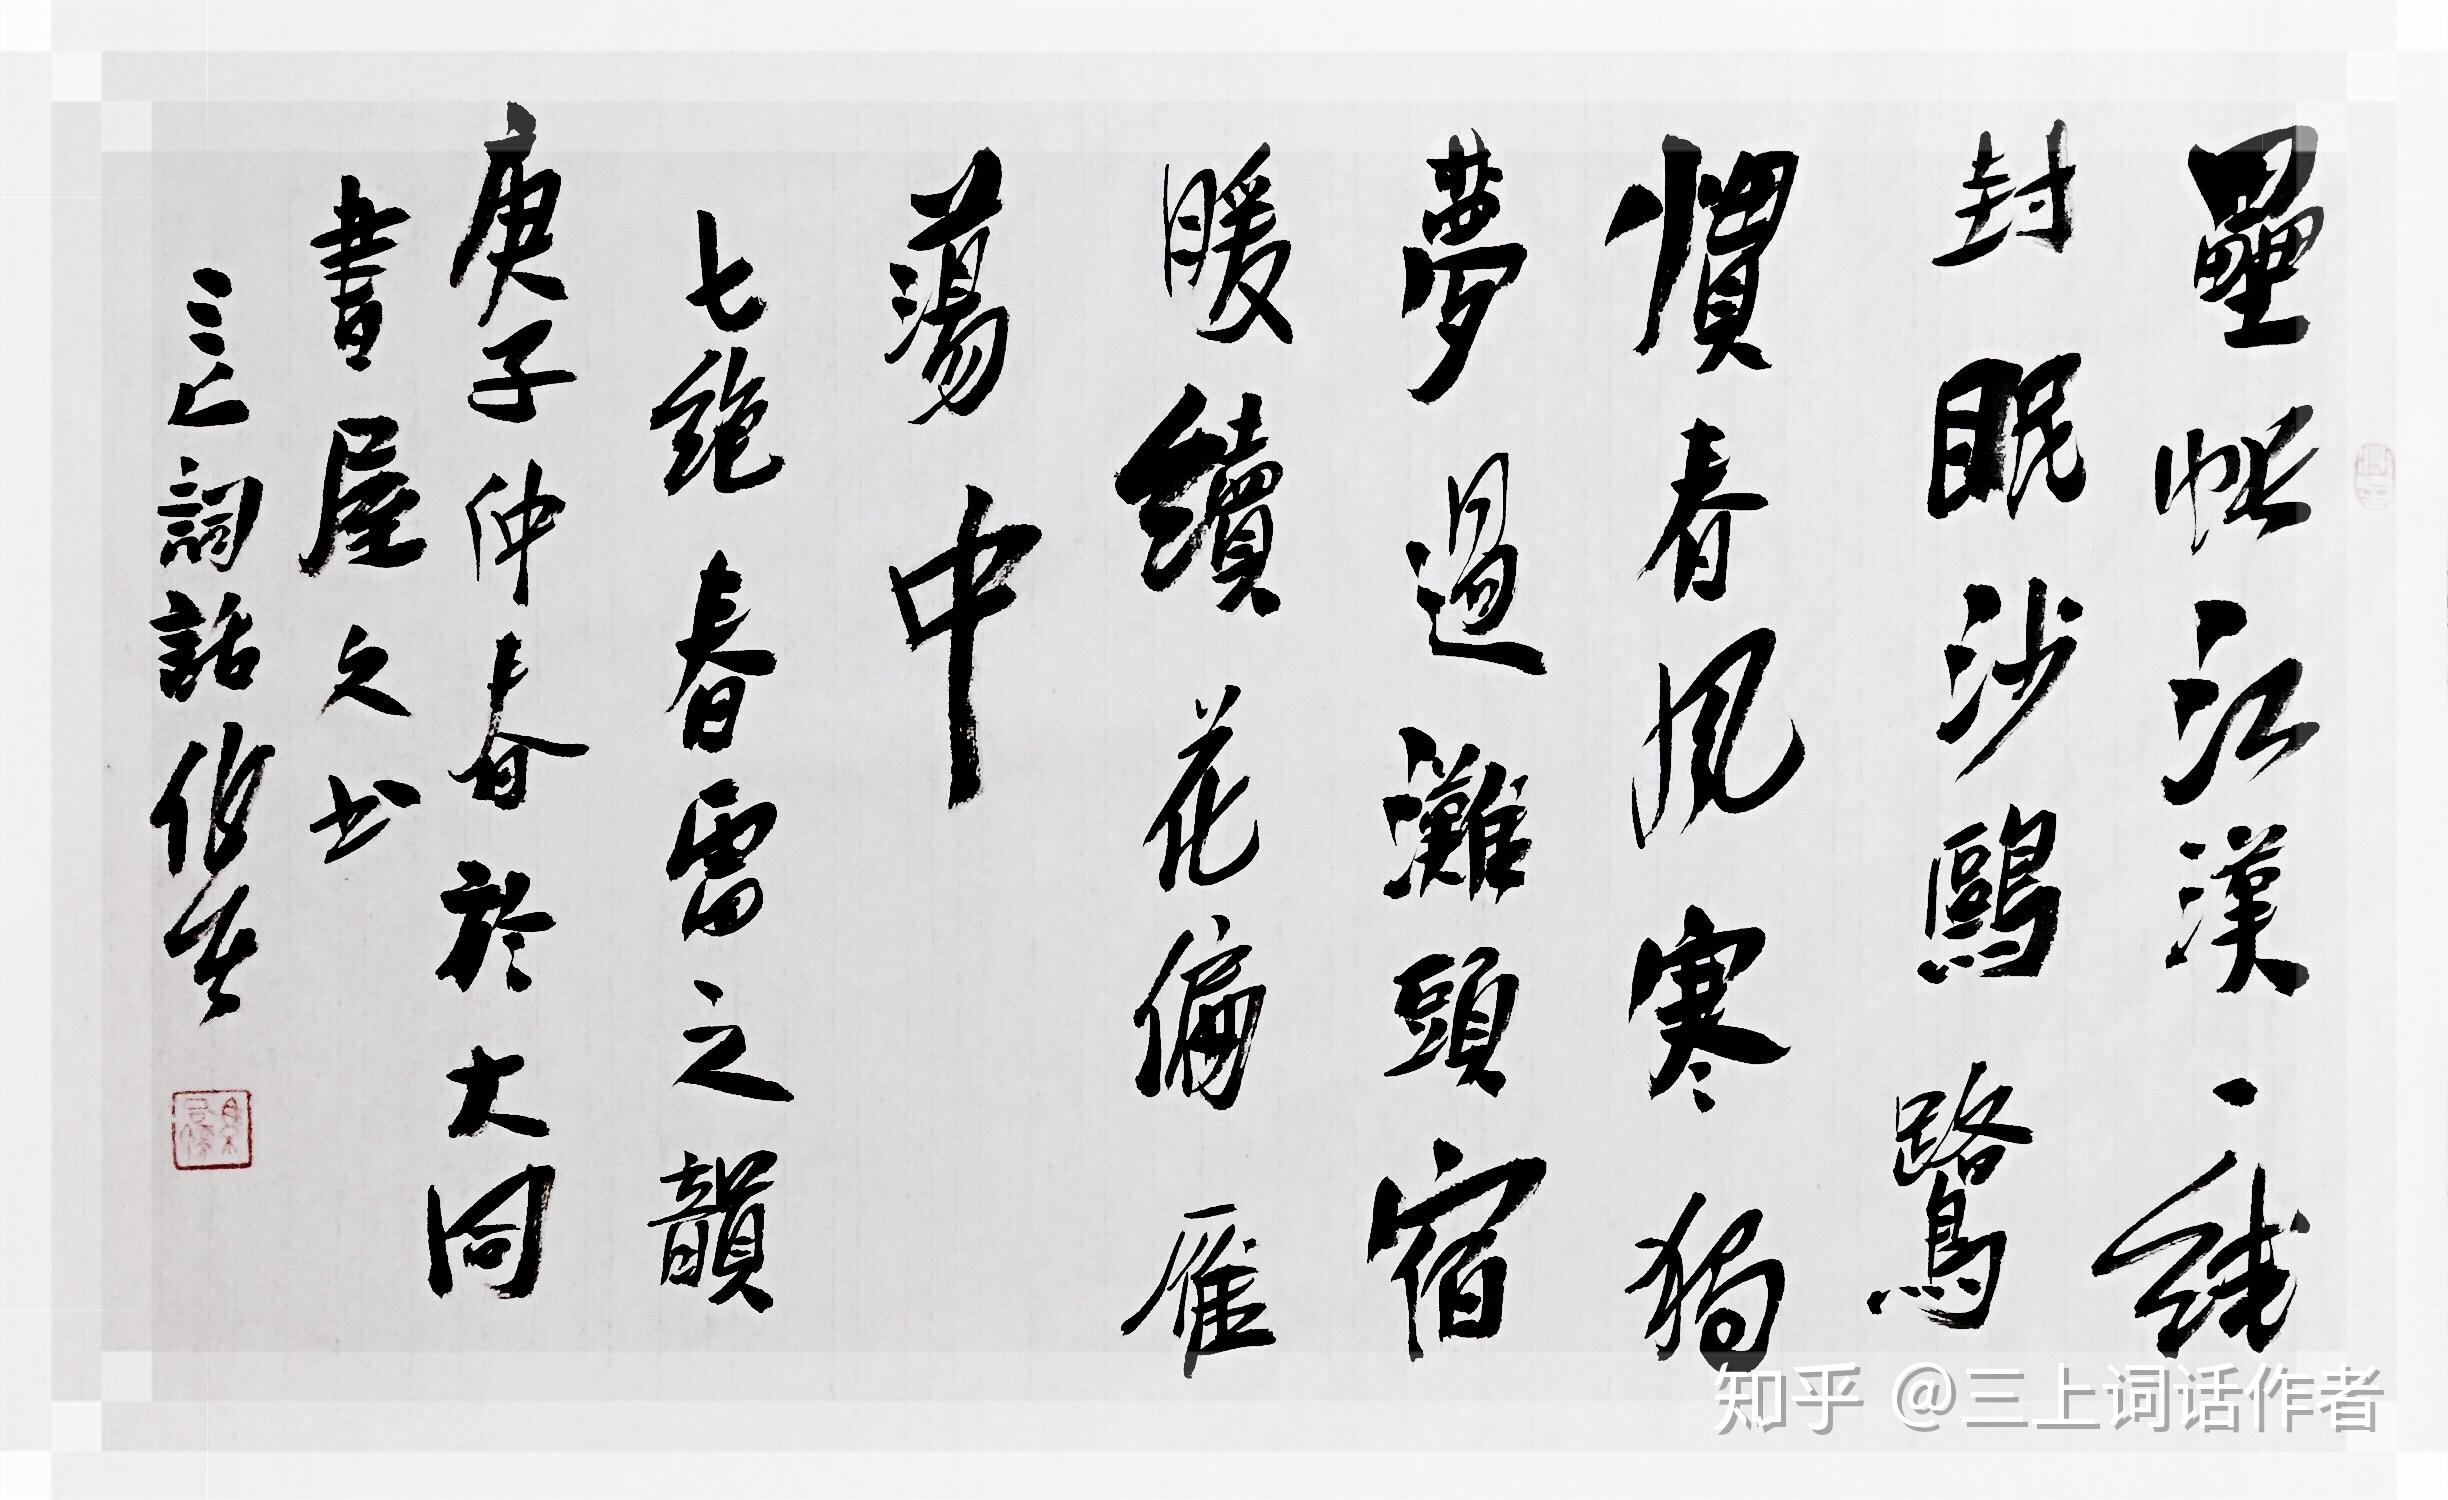 壘帳江漢一線
封眠沙鷗鷺
慣春風寒獨
夢過灘頭宿
暖續花偏雁
蕩中
七絕春雷之韻
庚子仲春於大同
書屋之书
三上詞話作者
知乎 @三上词话作者